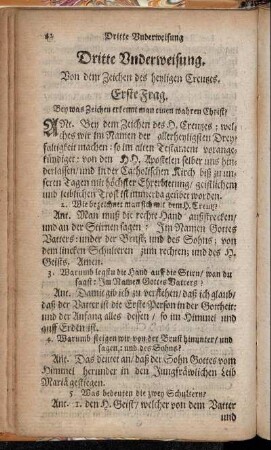 82 Dritte Vnderweisung
Dritte Vnderweisung.
Von dem Zeichen des heyligen Creutzes.
Erste Frag.
Bey was Zeichen erkennt man einen wahren Christ?
ANt. Bey dem Zeichen des H. Creutzes; wel-
ches wir im Namen der allerheyligsten Drey-
faltigkeit machen: so im alten Testament vorange-
kündiget: von den HH. Apostelen selber uns hin-
derlassen/ und in der Catholischen Kirch biß zu un-
seren Tagen mit höchster Ehrerbietung/ geistlichem
und leiblichen Trost ist immerdar geübet worden.
2. Wie bezeichnet man sich mit dem H. Creutz?
Ant. Man muß die rechte Hand aufstrecken/
und an der Stirnen sagen: Im Namen Gottes
Vatters: under der Brust; und des Sohns; von
dem lincken Schulteren zum rechten; und des H.
Geists. Amen.
3. Warumb legstu die Hand auff die Stirn/ wan du
sagst: Im Namen Gottes Vatters?
Ant. Damit gib ich zu verstehen/ daß ich glaub/
daß der Vatter ist die Erste Person in der Gottheit;
und der Anfang alles dessen/ so im Himmel und
auff Erden ist.
4. Warumb steigen wir von der Brust hinunter/ und
sagen: und des Sohns?
Ant. Das deutet an/ daß der Sohn Gottes vom
Himmel herunder in den Jungfräwlichen Leib
Mariä gestiegen.
5. Was bedeuten die zwey Schultern?
Ant. 1. den H. Geist/ welcher von dem Vatter
und